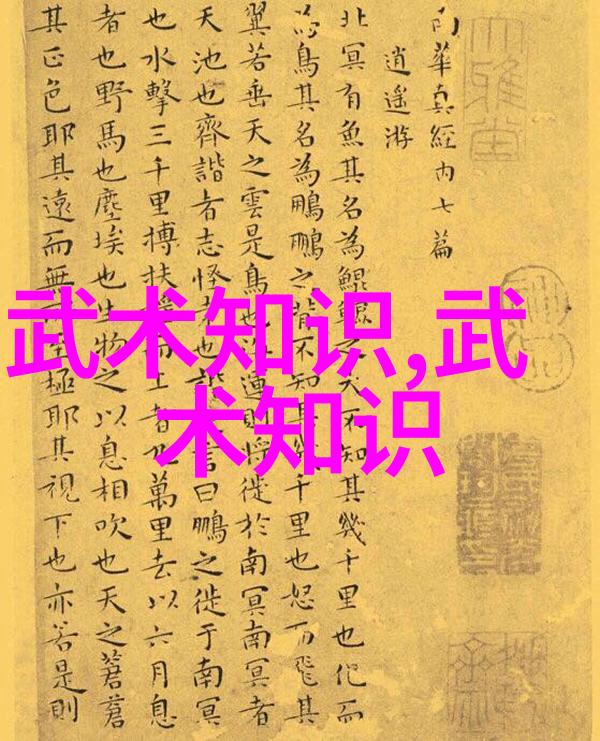 南華真經內七篇
逍遙游
北冥有魚其名為鯤鯤之大不知其幾千里也化而
為鳥其名為鵬鵬之背不知其幾千里也怒而飛其
翼若垂天之雲是鳥也海運則將徙於南冥南冥者
天池也齊諧者志怪者也諧之言曰鵬之徙于南冥
也水擊三千里摶扶搖而上者九萬里去以六月息
者也野馬也塵埃也生物之以息相吹也天之蒼蒼
其正色耶其遠而無所至極耶其視下也亦若是則
大雅堂
神品
武术知识,武
术知识